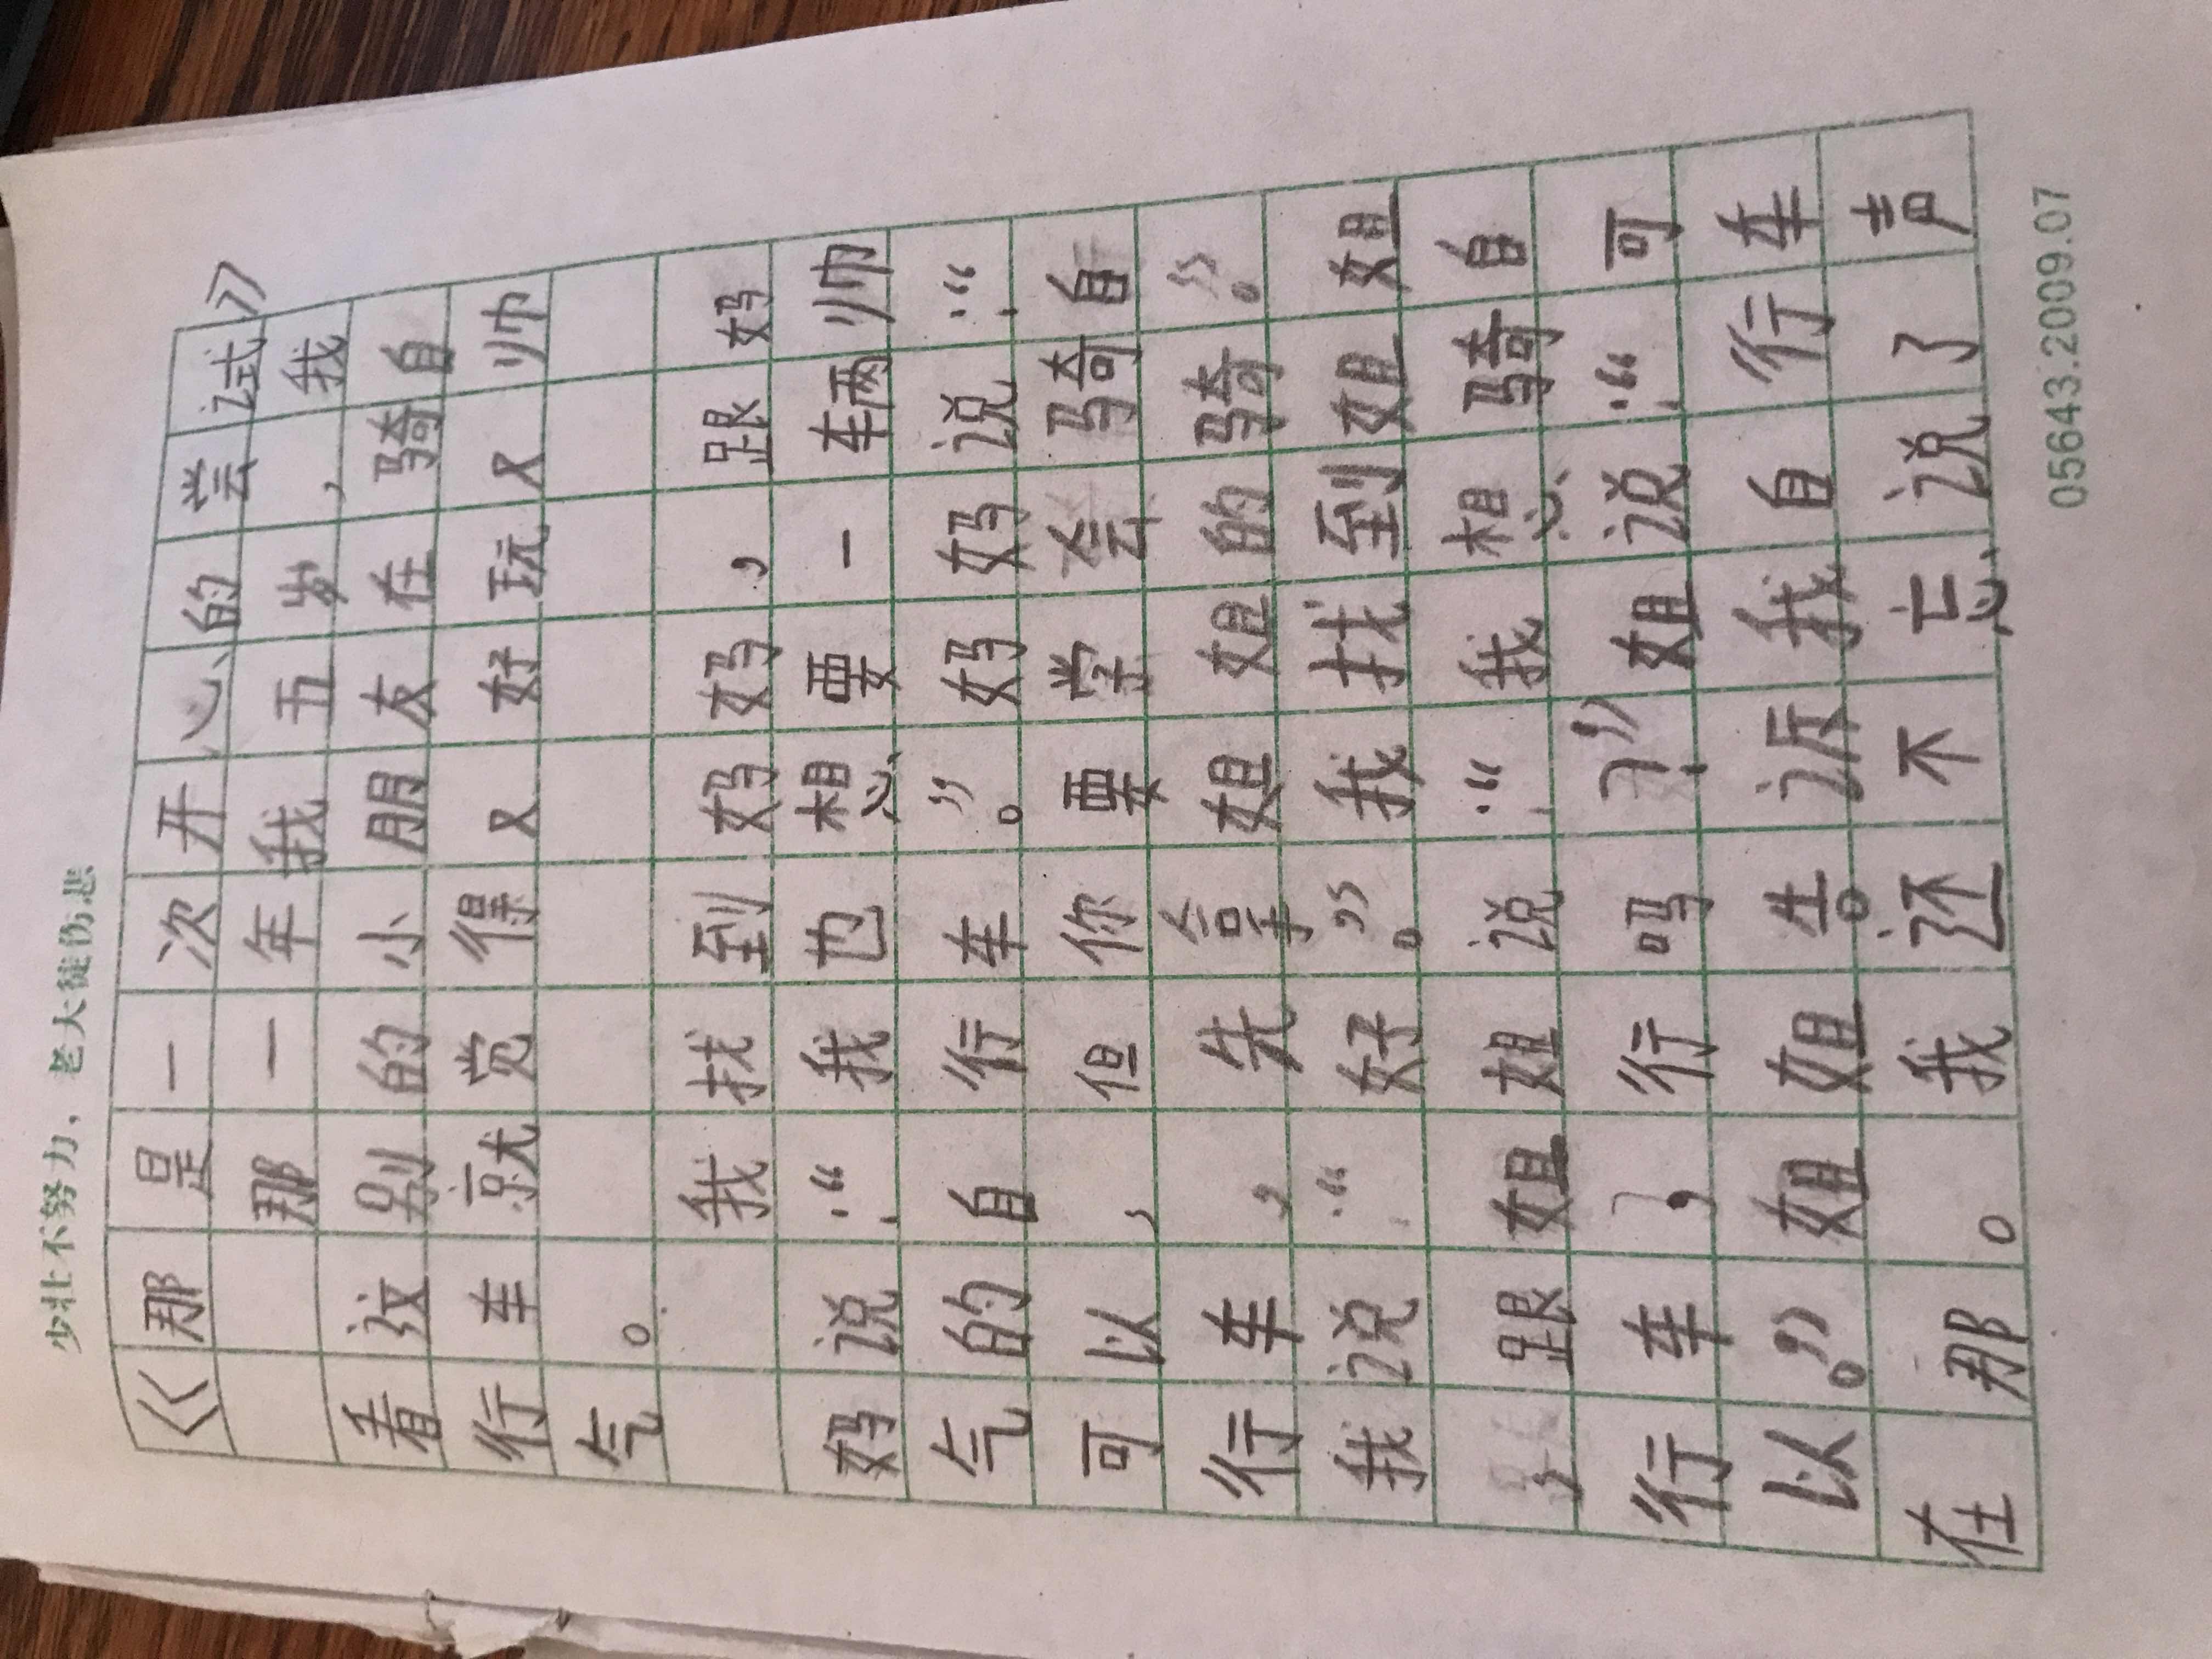 少壮不努力，老大徒伤悲
《那是一次开心的尝试》
那一年我五岁，我
看这别的小朋友在骑自
行车就觉得又好玩又帅
气。
我找到妈妈，跟妈
妈说：“我也想要一辆帅
气的自行车”。妈妈说：“
可以，但你要学会骑自
行车，先拿姐姐的骑”。
我说：“好”。我找到姐姐
，跟姐姐说：“我想骑自
行车，行吗？”姐说：“可
以。”姐姐告诉我自行车
在那。我还不忘说了声
05643.2009.07